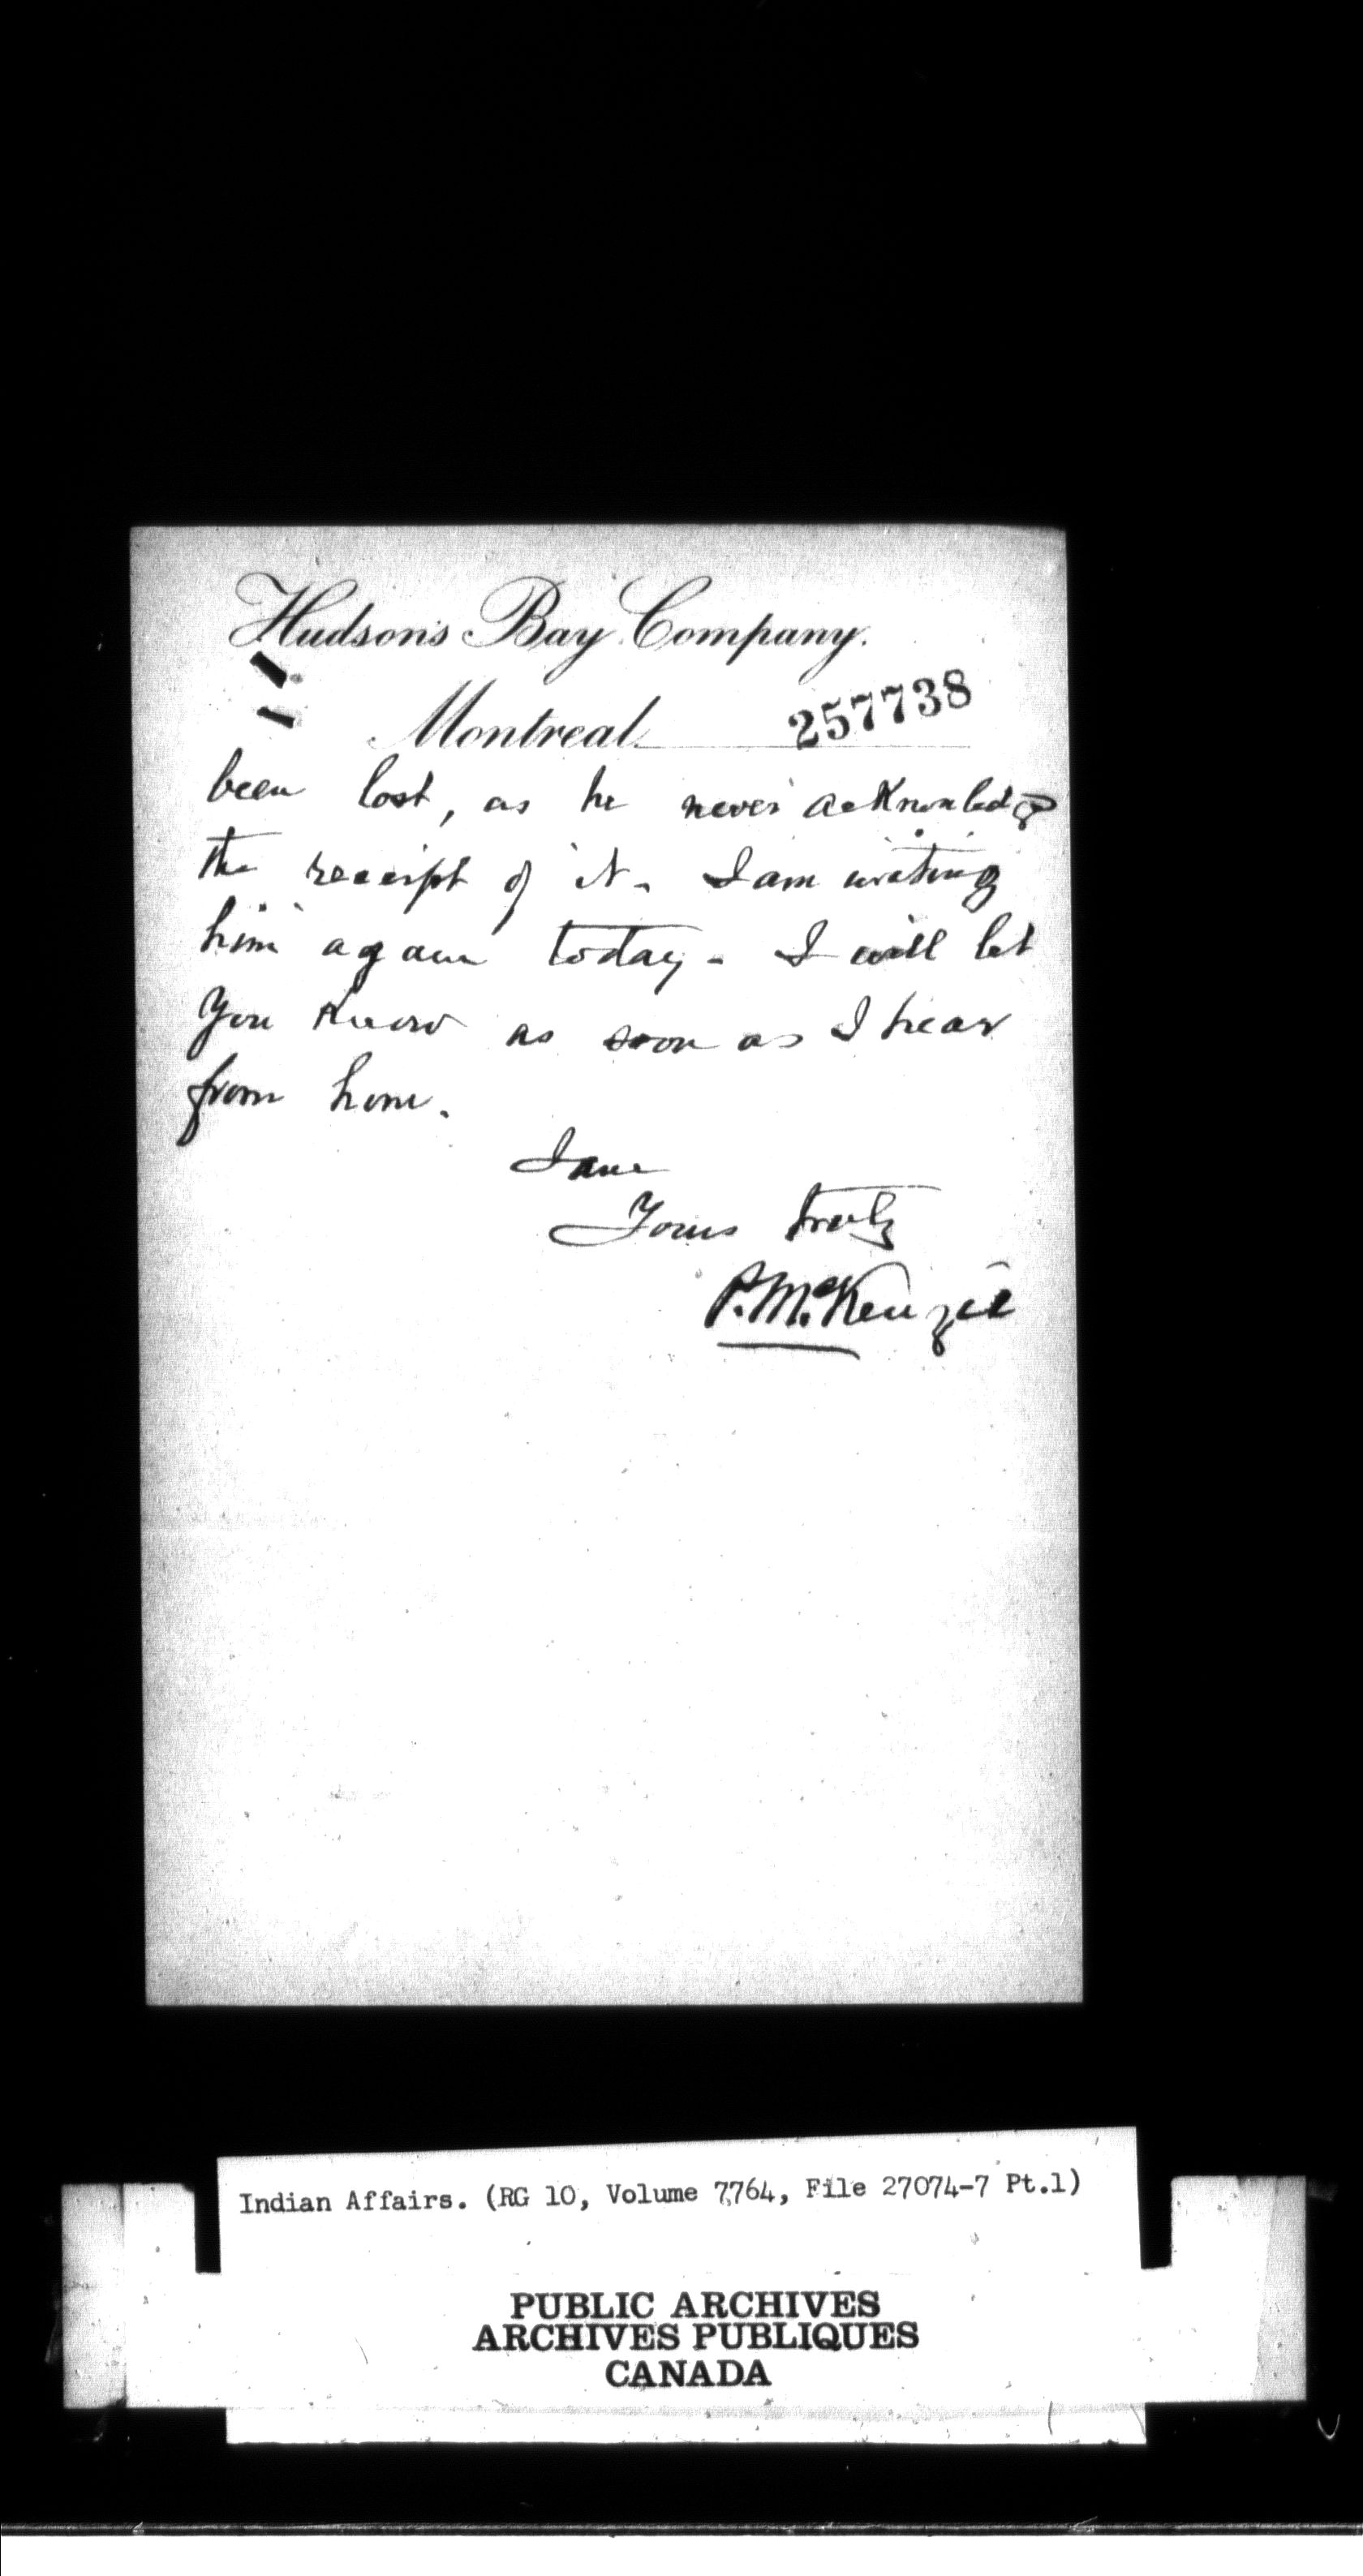 Hudson's Bay Company.
Montreal 257738
been lost, as he never acknowledged
the receipt of it. I am writing
him again today - I will let
you know as soon as I hear
from him.
I am
Yours truly
P. McKenzie
Indian Affairs. (RG 10, Volume 7764, File 27074-7 Pt.1)
PUBLIC ARCHIVES
ARCHIVES PUBLIQUES
CANADA